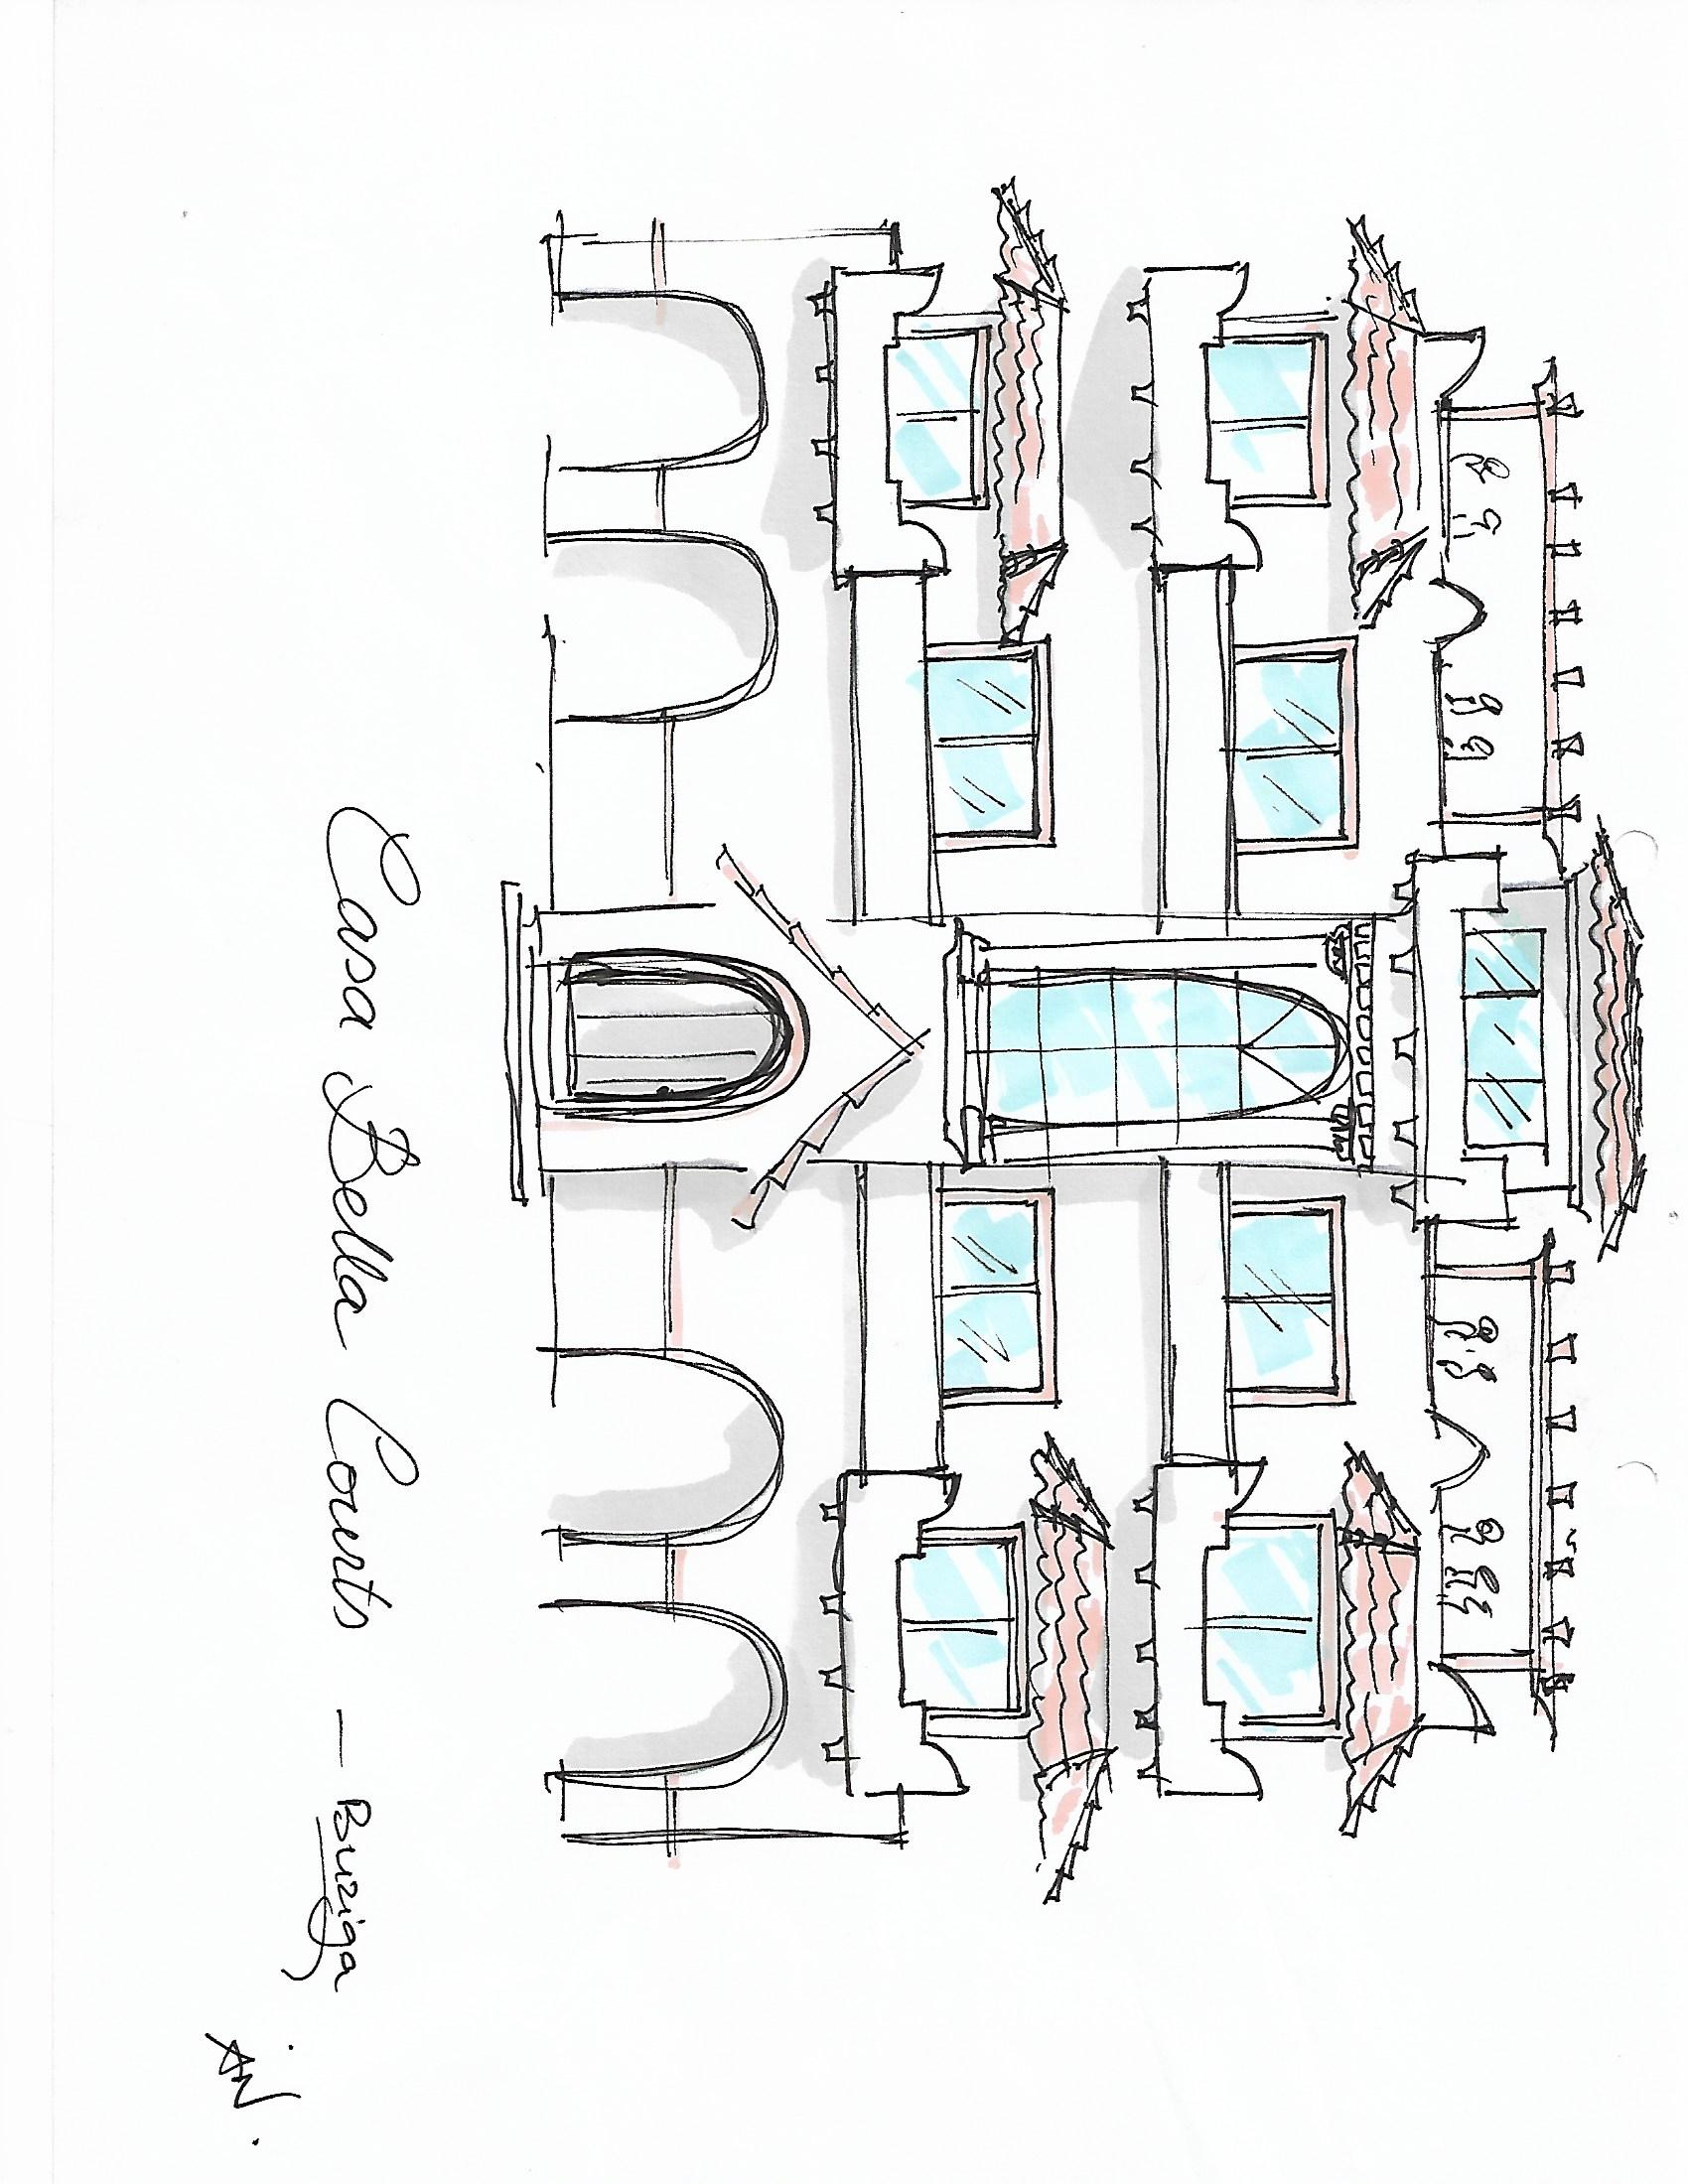 Casa Bella Courts – Buziga
AN.